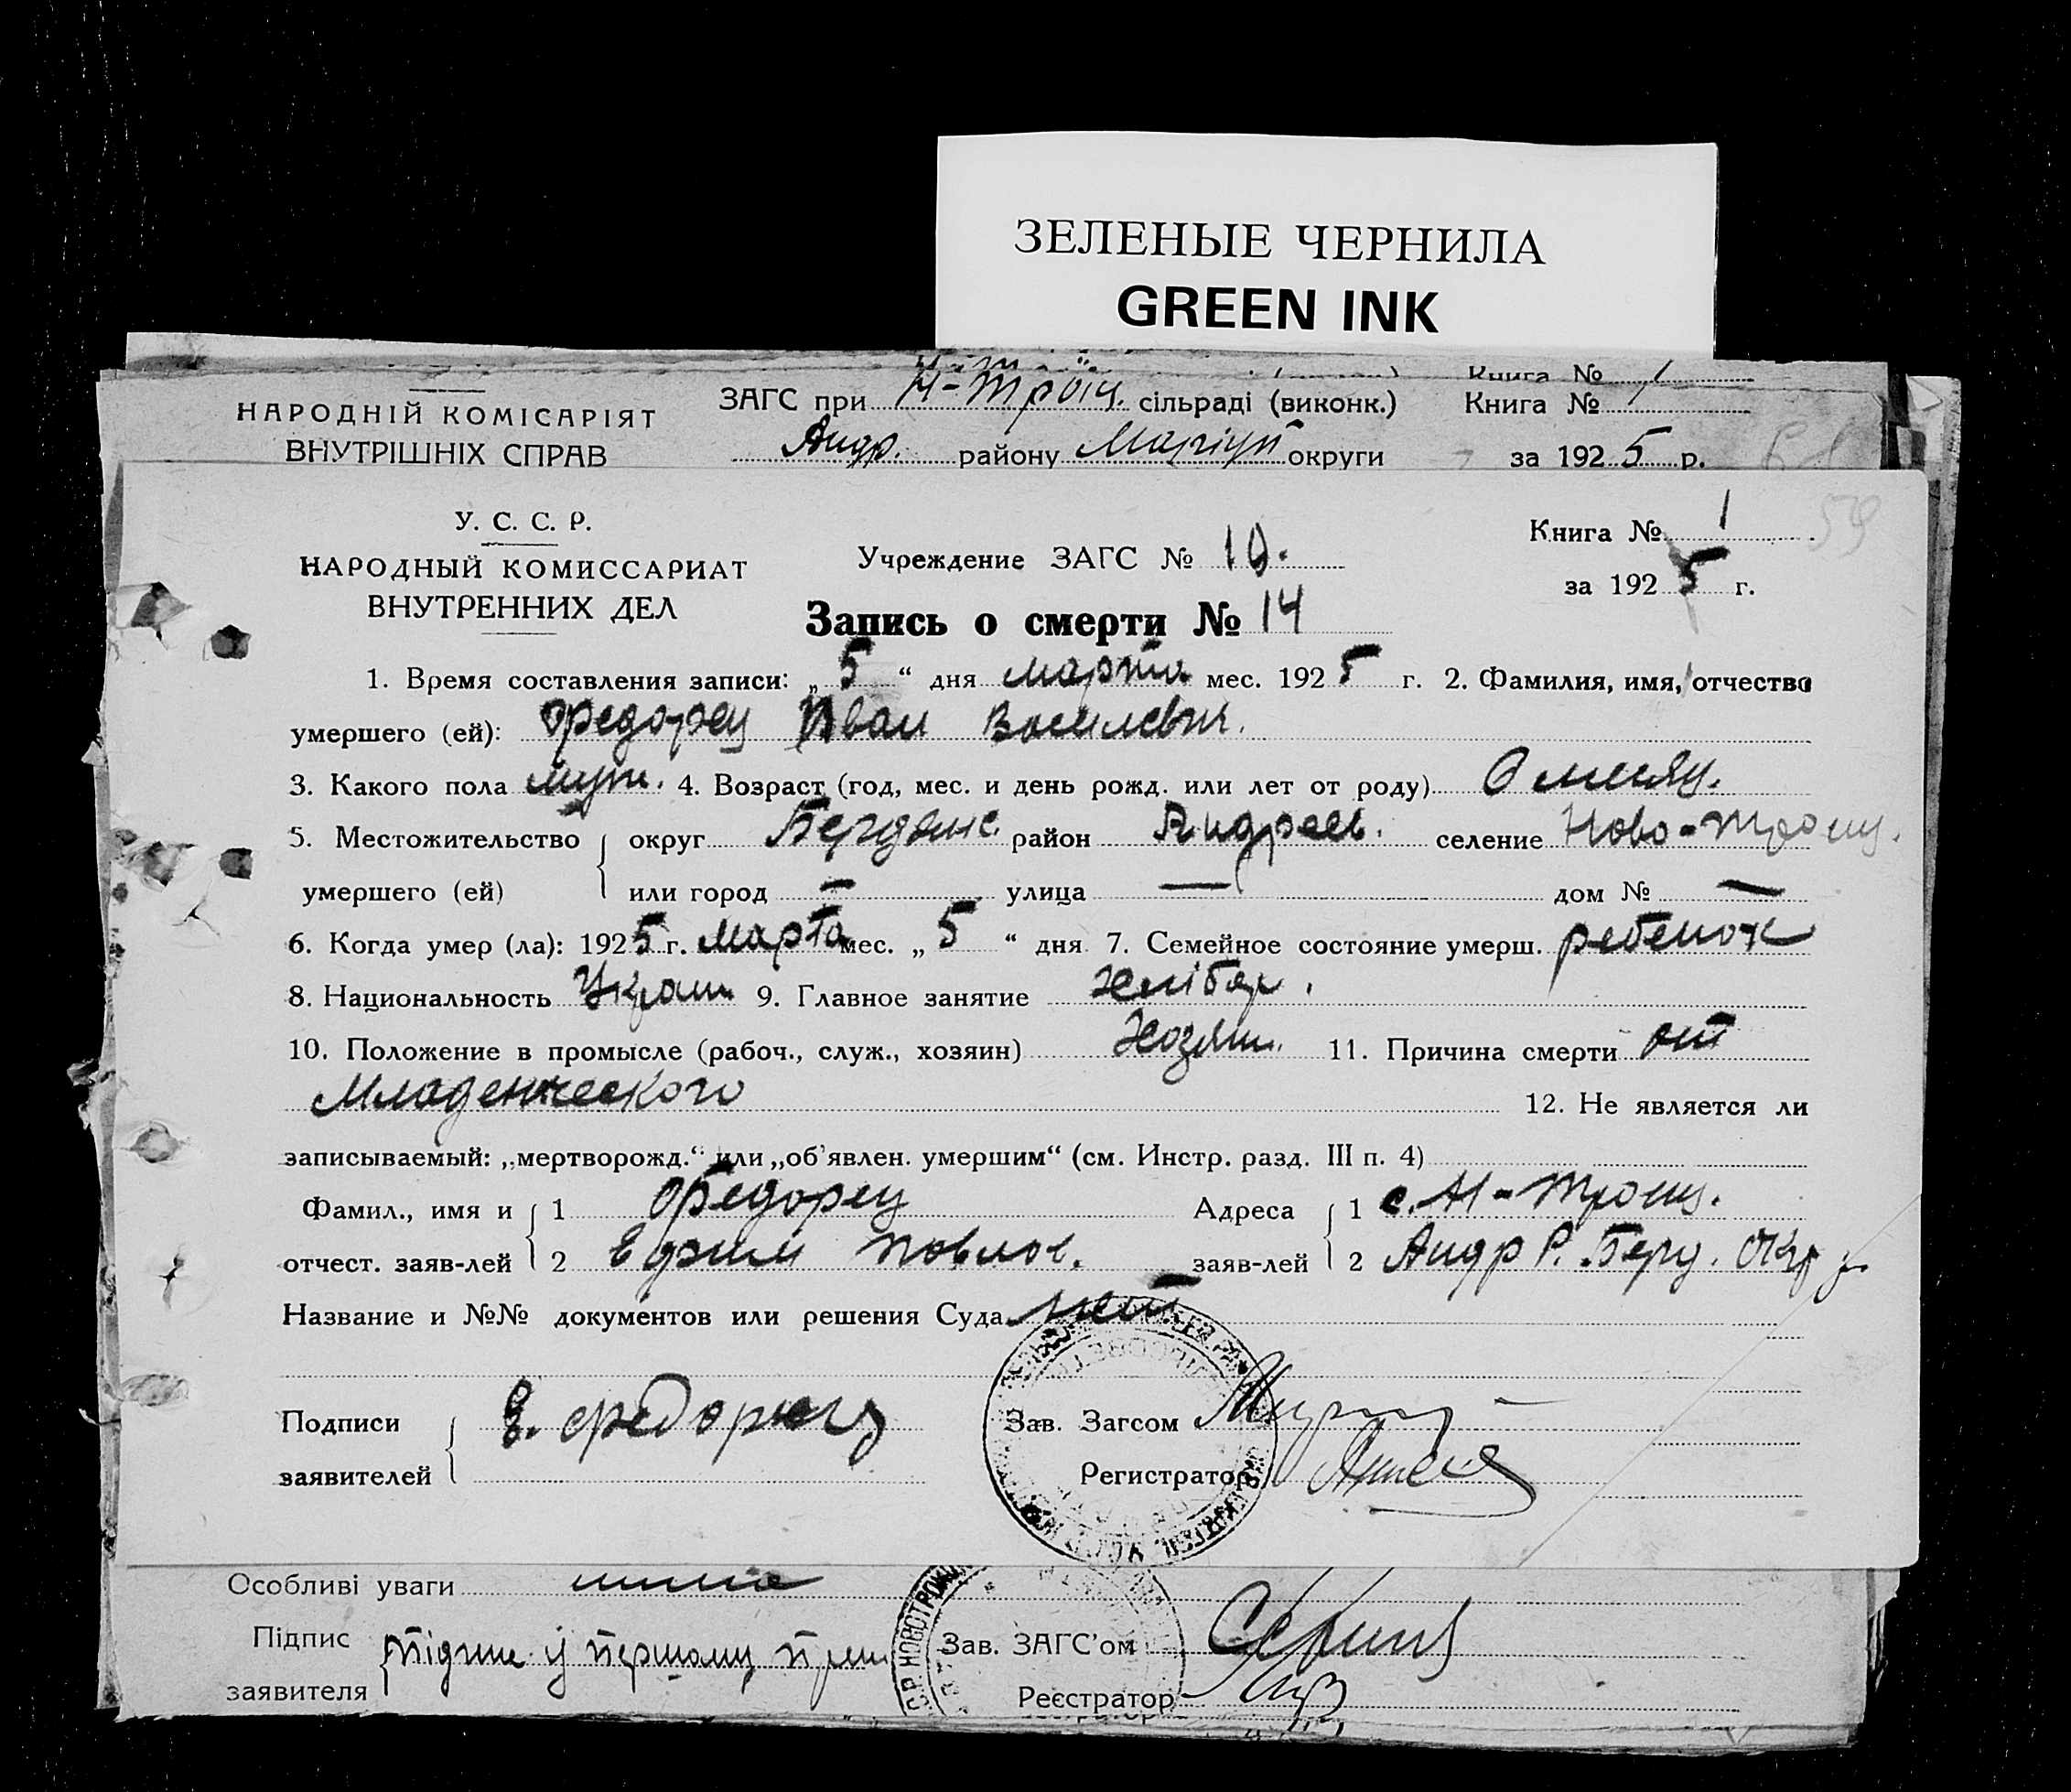 ЗЕЛЕНЫЕ ЧЕРНИЛА
GREEN INK
Книга № 1
НАРОДНІЙ КОМІСАРІЯТ ЗАГС при Н-Троїц. сільраді (виконк.) Книга № 1
ВНУТРІШНІХ СПРАВ Андр. району Маріуп округи за 1925 р.
У. С. С. Р. Книга № 1 59
НАРОДНЫЙ КОМИССАРИАТ Учреждение ЗАГС № 10. за 1925 г.
ВНУТРЕННИХ ДЕЛ
Запись о смерти № 14
1. Время составления записи: „5“ дня марта мес. 1925 г. 2. Фамилия, имя, отчество
умершего (ей): Федорец Иван Василевич.
3. Какого пола муж. 4. Возраст (год, мес. и день рожд. или лет от роду) 6 месяц.
5. Местожительство округ Бердянс. район Андреев. селение Ново-Троиц.
умершего (ей) или город — улица — дом № —
6. Когда умер (ла): 1925 г. марта мес. „5“ дня 7. Семейное состояние умерш. ребенок
8. Национальность Украин 9. Главное занятие хлібор.
10. Положение в промысле (рабоч., служ., хозяин) Хозяин. 11. Причина смерти от
Младенческого 12. Не является ли
записываемый: „мертворожд.“ или „об'явлен. умершим“ (см. Инстр. разд. III п. 4)
Фамил., имя и 1 Федорец Адреса 1 с. Н-Троиц.
отчест. заяв-лей 2 Ефим Павлов. заяв-лей 2 Андр Р. Берд. Окр
Название и №№ документов или решения Суда нет
Подписи Е. Федорец Зав. Загсом
заявителей Регистратор
Особливі уваги нима
Підпис Підпис у першому прим Зав. ЗАГС'ом
заявителя Реєстратор